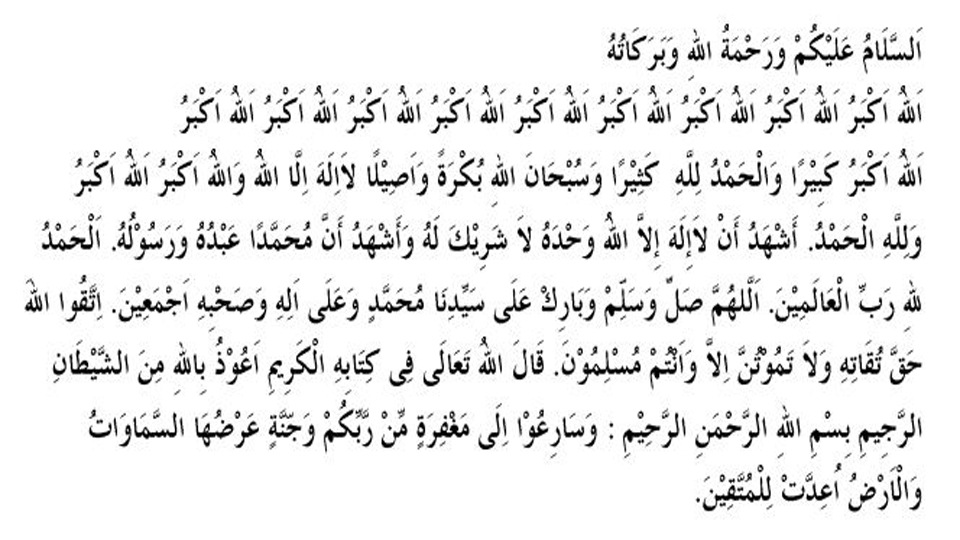 اَلسَّلَامُ عَلَيْكُمْ وَرَحْمَةُ اللهِ وَبَرَكَاتُهُ
اَللهُ اَكْبَرُ اَللهُ اَكْبَرُ اَللهُ اَكْبَرُ اَللهُ اَكْبَرُ اَللهُ اَكْبَرُ اَللهُ اَكْبَرُ اَللهُ اَكْبَرُ اَللهُ اَكْبَرُ اَللهُ اَكْبَرُ
اَللهُ اَكْبَرُ كَبِيْرًا وَالْحَمْدُ لِلَّهِ كَثِيْرًا وَسُبْحَانَ اللهِ بُكْرَةً وَاَصِيْلًا لاَاِلَهَ اِلَّا اللهُ وَاللهُ اَكْبَرُ اَللهُ اَكْبَرُ
وَلِلَّهِ الْحَمْدُ. أَشْهَدُ أَنْ لاَإِلَهَ إِلاَّ اللهُ وَحْدَهُ لاَ شَرِيْكَ لَهُ وَأَشْهَدُ أَنَّ مُحَمَّدًا عَبْدُهُ وَرَسُوْلُهُ. اَلْحَمْدُ
للهِ رَبِّ الْعَالَمِيْنَ. اَللهُمَّ صَلِّ وَسَلِّمْ وَبَارِكْ عَلَى سَيِّدِنَا مُحَمَّدٍ وَعَلَى اَلِهِ وَصَحْبِهِ اَجْمَعِيْنَ. اِتَّقُوا اللهَ
حَقَّ تُقَاتِهِ وَلاَ تَمُوْتُنَّ اِلاَّ وَاَنْتُمْ مُسْلِمُوْنَ. قَالَ اللهُ تَعَالَى فِى كِتَابِهِ الْكَرِيمِ اَعُوْذُ بِاللهِ مِنَ الشَّيْطَانِ
الرَّجِيمِ بِسْمِ اللهِ الرَّحْمَنِ الرَّحِيْمِ : وَسَارِعُوْا اِلَى مَغْفِرَةٍ مِّنْ رَّبِّكُمْ وَجَنَّةٍ عَرْضُهَا السَّمَاوَاتُ
وَالْاَرْضُ اُعِدَّتْ لِلْمُتَّقِيْنَ.